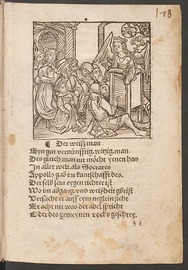 128
Der weiß man
Wen gut vernünfftig, witzig, man
Des gleich man nit möcht yenen han
In aller welt, als Socrates
Appollo gab im kuntschafft des,
Der selb sein eygen richter ist
Wo im abgang, und weißheit gbrist
Versůcht er auff eyn neglein sich
Er acht nit was der adel spricht
Oder des gemeynen volcks geschrey,